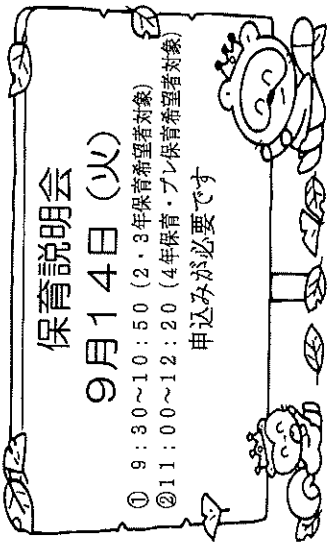 保育説明会
９月１４日（火）
① 9：30～10：50（2・3年保育希望者対象）
②11：00～12：20（4年保育・プレ保育希望者対象）
申込みが必要です